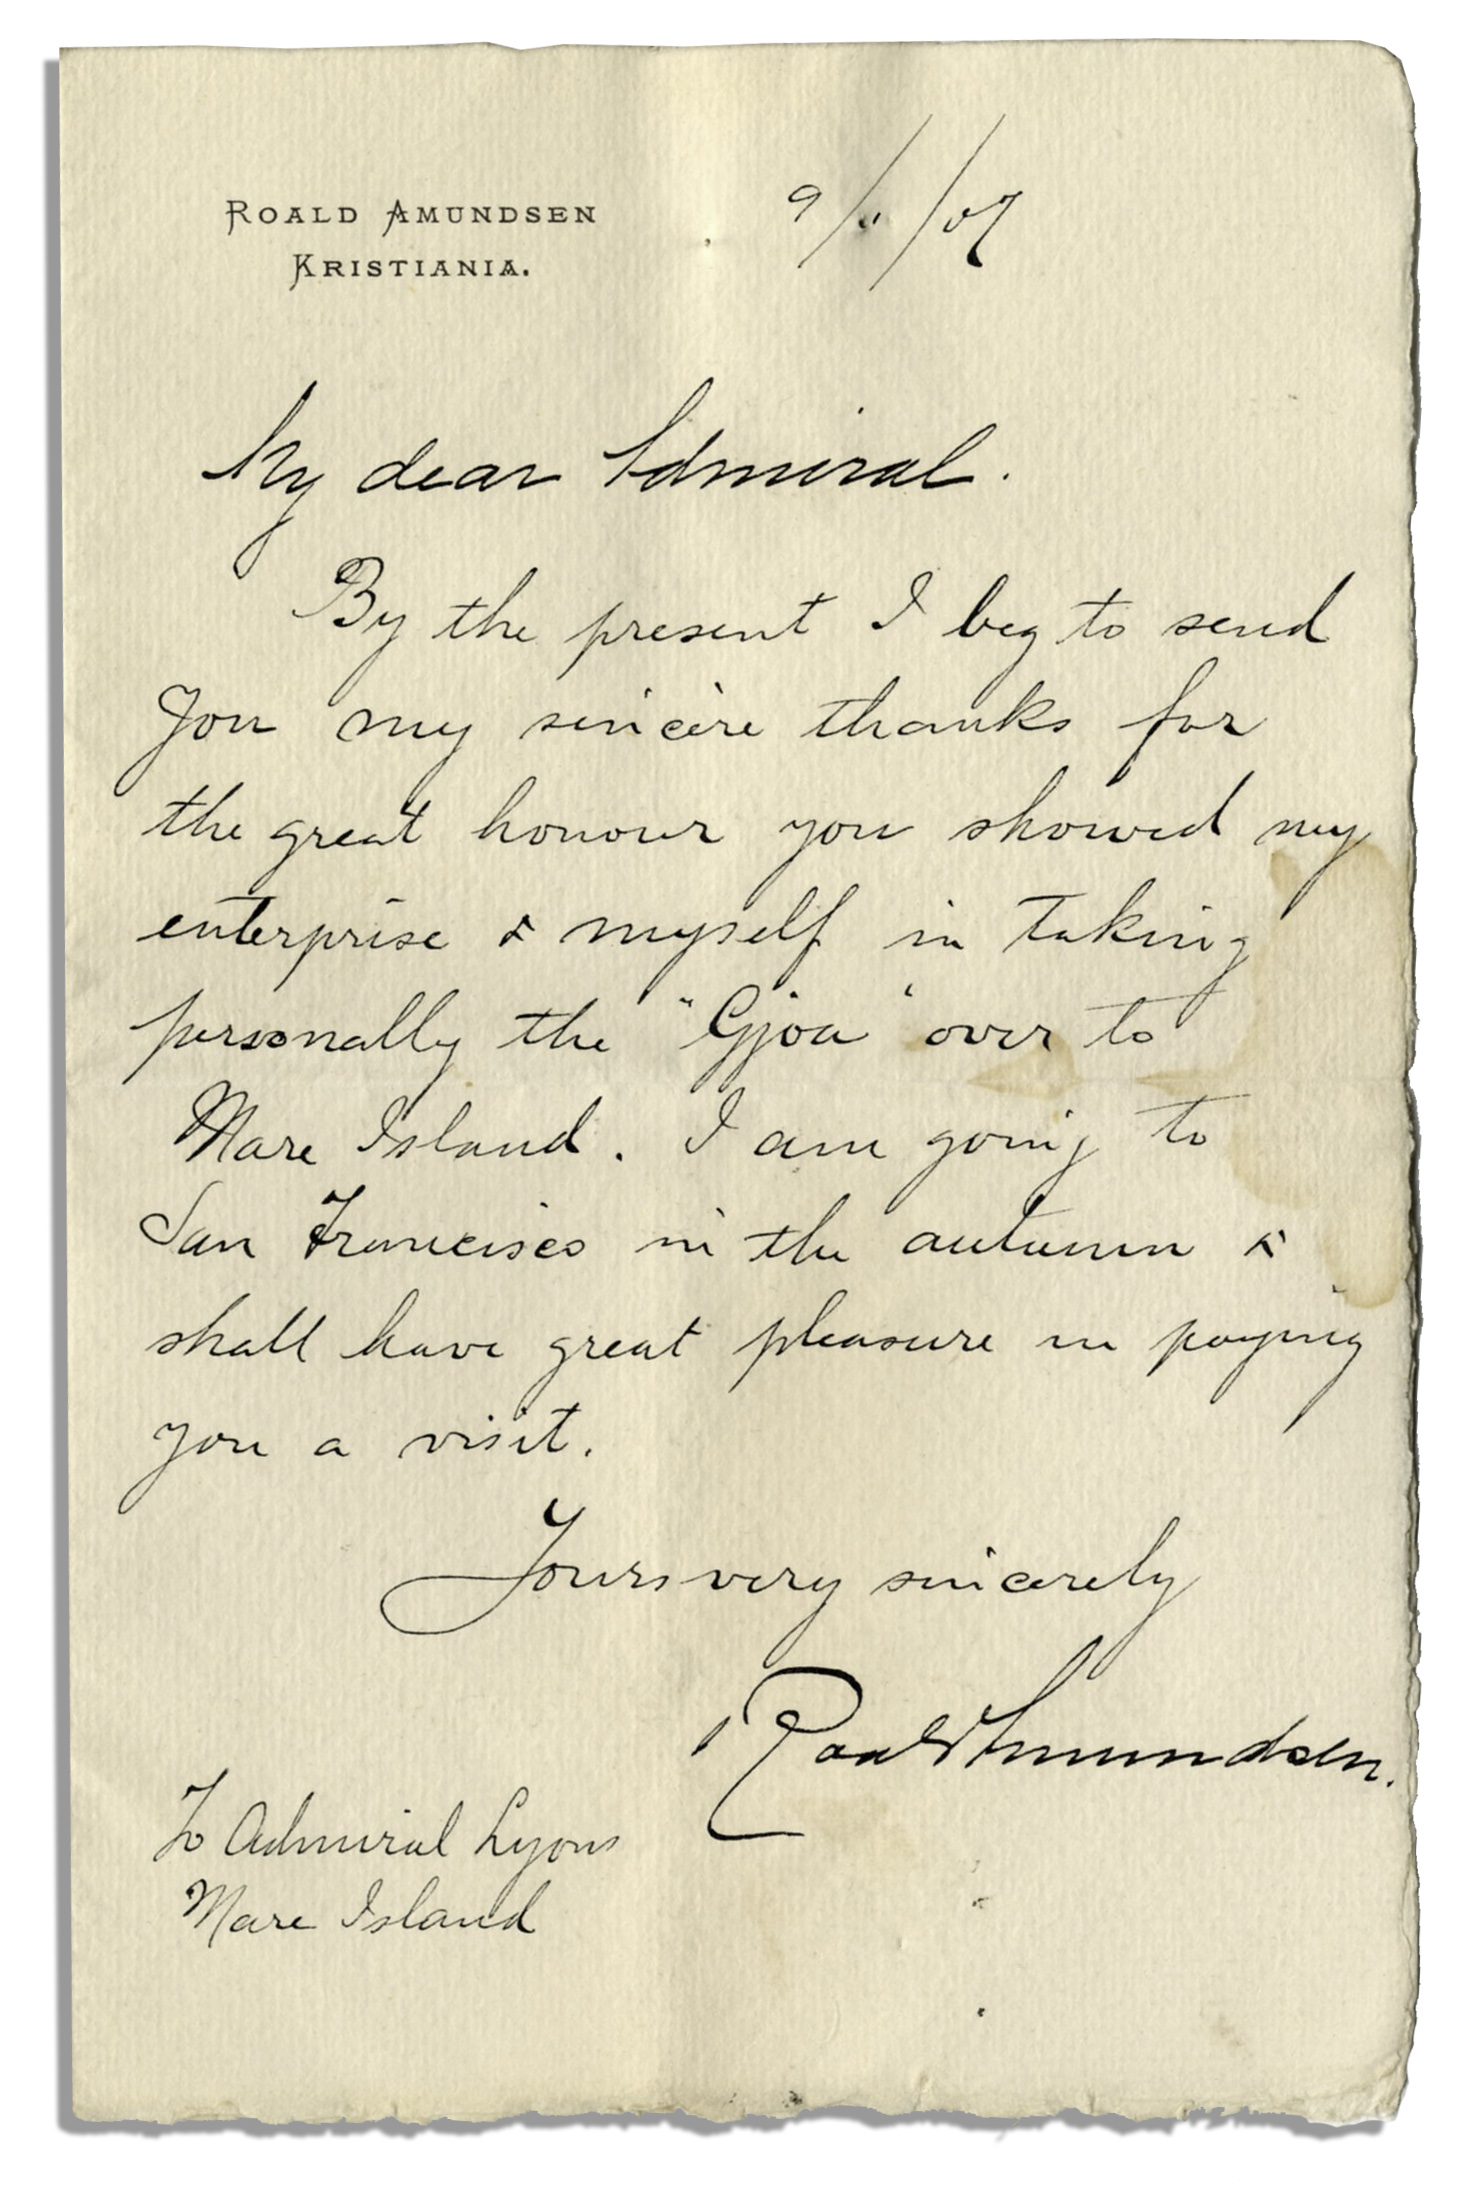 ROALD AMUNDSEN
KRISTIANIA.
9/ /07
My dear Admiral.
By the present I beg to send
You my sincere thanks for
the great honour you showed my
enterprise & myself in taking
personally the "Gjoa" over to
Mare Island. I am going to
San Francisco in the autumn &
shall have great pleasure in paying
you a visit.
Yours very sincerely
Roald Amundsen.
To Admiral Lyons
Mare Island